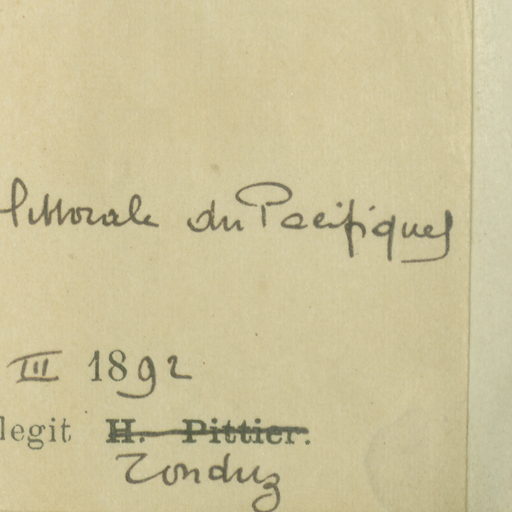 littorale du Pacifique
III 1892
legit H. Pittier.
Tonduz